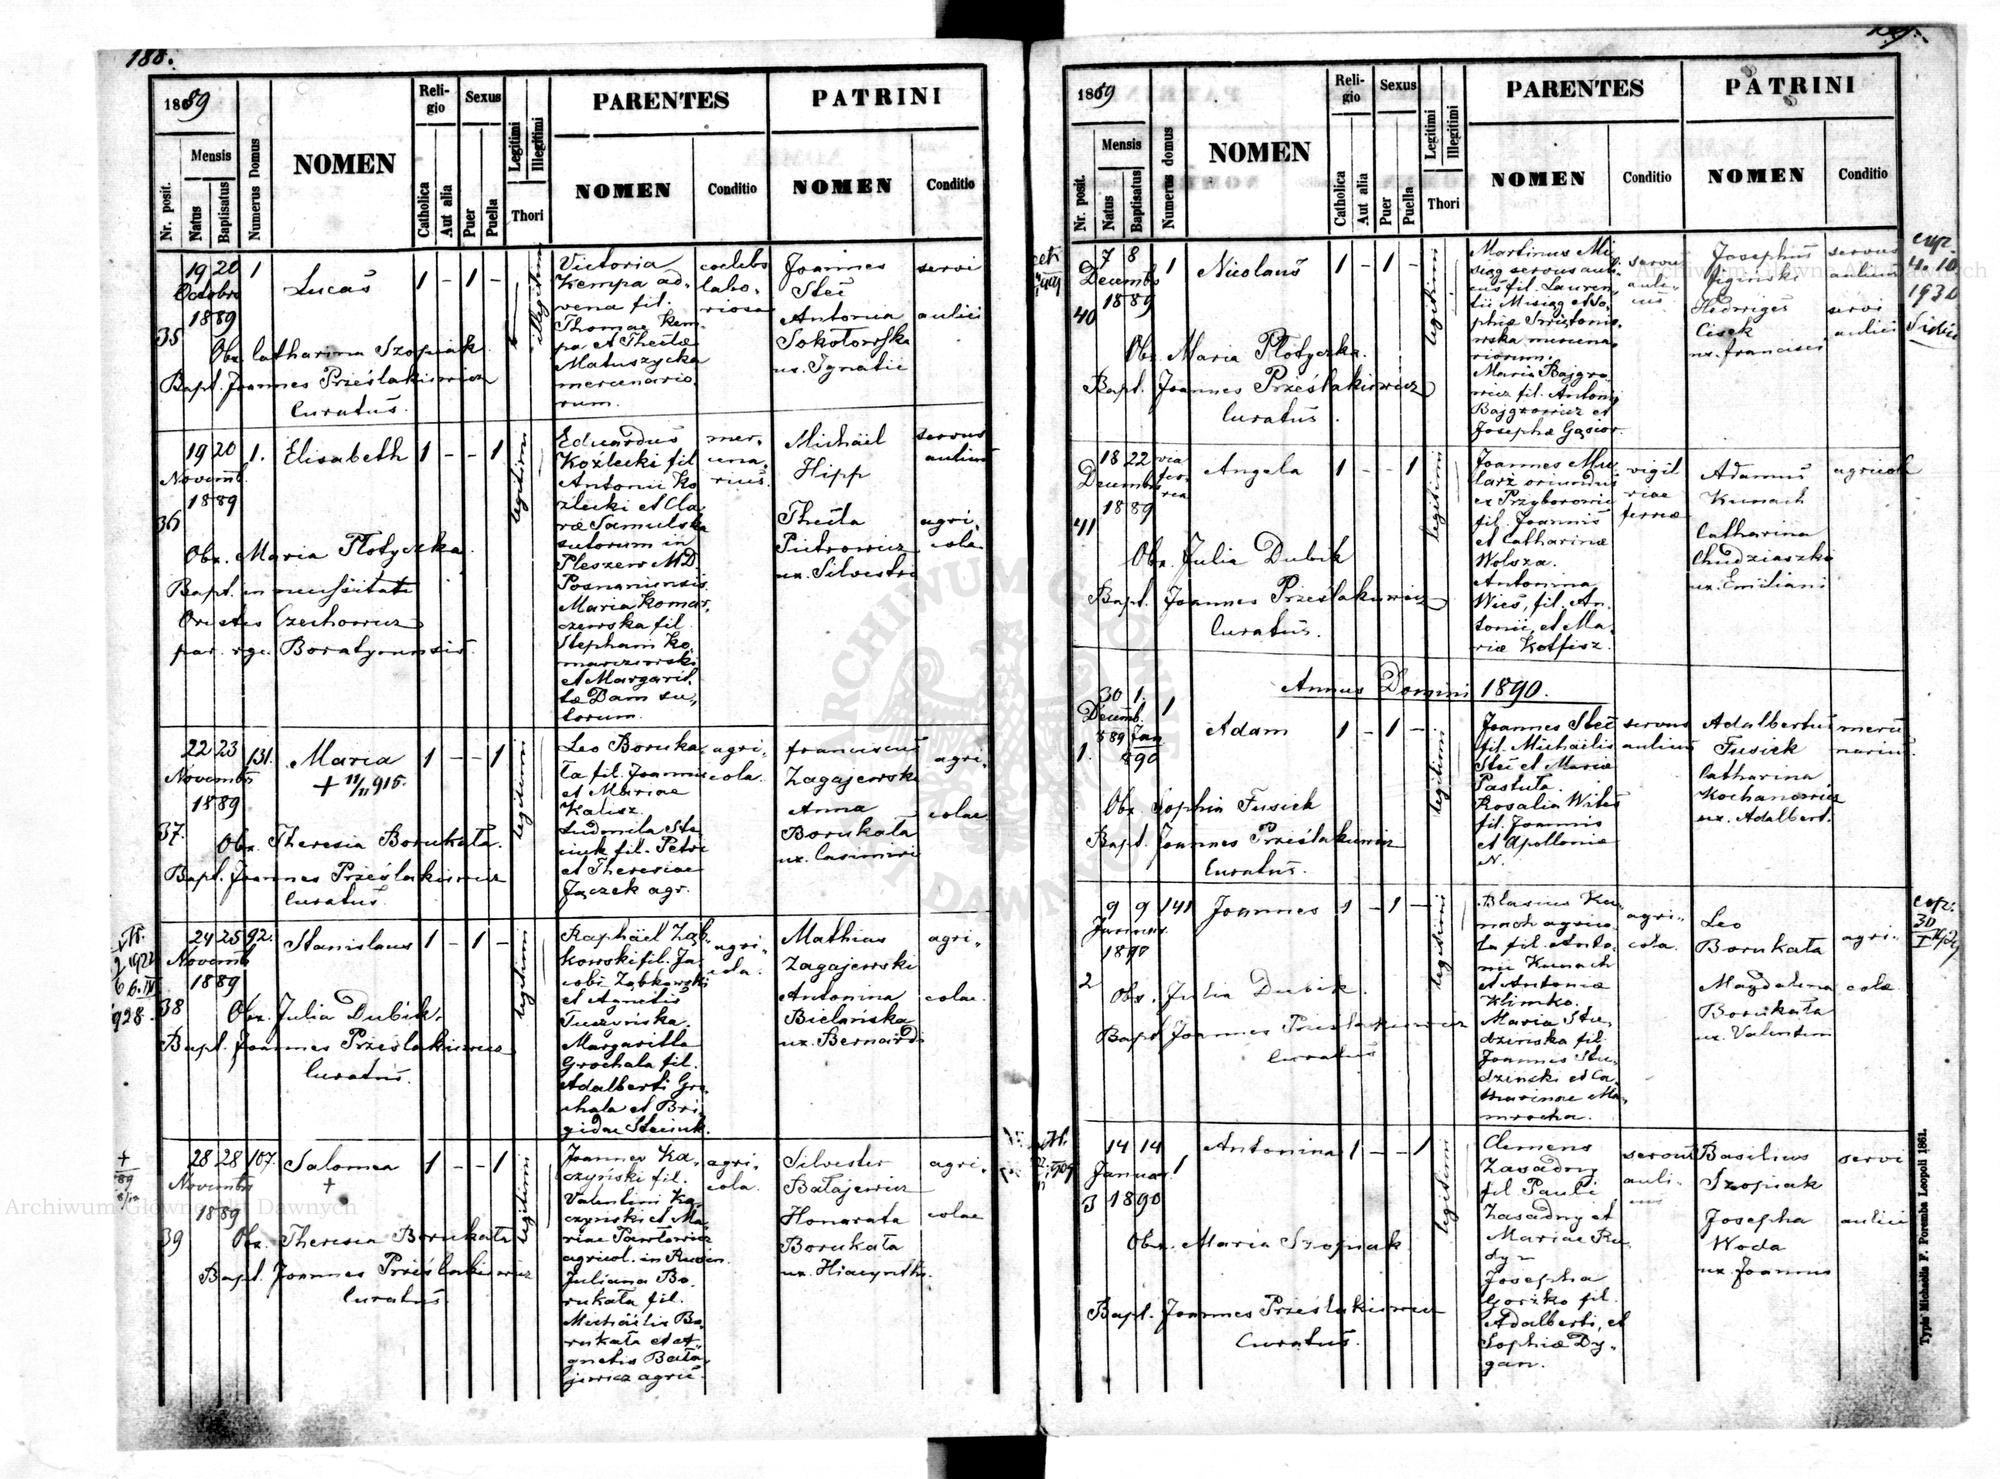 188.
1889
Religio
Sexus
Legitimi
Illegitimi
PARENTES
PATRINI
Mensis
Nr. posit.
Natus
Baptisatus
Numerus Domus
NOMEN
Catholica
Aut alia
Puer
Puella
Thori
NOMEN
Conditio
NOMEN
Conditio
35
19 20
Octobris
1889
1
Lucas
1 - 1 -
illegitimi
Obx. Catharina Szopiak
Bapt. Joannes Prześlakiewicz
Curatus.
Victoria
Kempa ad-
vena fil.
Thomae Kem-
pa et Theclae
Matuszycka
mercenario-
rum.
coelebs
labo-
riosa
Joannes
Steć
Antonia
Sokołowska
ux. Ignatii
servi
aulici
36
19 20
Novemb.
1889
1.
Elisabeth
1 - - 1
legitimi
Obx. Maria Płotyczka
Bapt. in necessitate
Orestes Czechowicz
par. rgc. Boratynensis.
Eduardus
Koźlecki fil.
Antonii Ko-
zlecki et Cla-
rae Samulska
sutorum in
Pleszew MD
Posnaniensis.
Maria Komar-
czewska fil.
Stephani Ko-
marczewski
et Margari-
tae Bam su-
torum.
mer-
cena-
rius.
Michaël
Hipp
Thecla
Pietrowicz
ux. Silvestri
servus
aulicus
agri-
cola
37.
22 23
Novembr.
1889
131.
Maria
+ 11/11 915.
1 - - 1
legitimi
Obx. Theresia Borukała.
Bapt. Joannes Prześlakiewicz
Curatus.
Leo Boruka-
ła fil. Joannis
et Mariae
Kalisz.
Ludmila Ste-
ciuk fil. Petri
et Theresiae
Jączek agr.
agri-
cola.
Franciscus
Zagajewski
Anna
Borukała
ux. Casimiri
agri-
colae
38
24 25
Novemb.
1889
92.
Stanislaus
1 - 1 -
legitimi
Obx. Julia Dubik.
Bapt. Joannes Prześlakiewicz
Curatus.
Raphaël Ząb-
kowski fil. Ja-
cobi Ząbkowski
et Agnetis
Tuczyńska.
Margaritta
Grochala fil.
Adalberti Gro-
chala et Bri-
gidae Steciuk.
agri-
cola.
Mathias
Zagajewski
Antonina
Bielańska
ux. Bernardi
agri-
colae.
39
28 28
Novembr.
1889
107.
Salomea
+
1 - - 1
legitimi
Obx. Theresia Borukała
Bapt. Joannes Prześlakiewicz
Curatus.
Joannes Ka-
czyński fil.
Valentini Ka-
czyński et Ma-
riae Pawłowicz
agricol. in
Juliana Bo-
rukała fil.
Michaëlis Bo-
rukała et A-
gnetis Bała-
jewicz agric.
agri-
cola.
Silvester
Bałajewicz
Honorata
Borukała
ux. Hiacynthi.
agri-
colae
1889
Religio
Sexus
Legitimi
Illegitimi
PARENTES
PATRINI
Mensis
Nr. posit.
Natus
Baptisatus
Numerus domus
NOMEN
Catholica
Aut alia
Puer
Puella
Thori
NOMEN
Conditio
NOMEN
Conditio
40
7 8
Decembr.
1889
1
Nicolaus
1 - 1 -
legitimi
Obx. Maria Płotyczka.
Bapt. Joannes Prześlakiewicz
Curatus.
Martinus Mi-
siąg servus auli-
cus fil. Lauren-
tii Misiąg et So-
phiae Swięto-
wska mercena-
riorum.
Maria Bajgro-
wicz fil. Antonii
Bajgrowicz et
Josephae Gąsior.
servus
auli-
cus
Josephus
Jiginski
Hedwiges
Cisek
ux. Francisci
servus
aulicus
servi
aulici
4. 10.
1930
41
18 22
Decembr.
1889
via
fer-
rea
Angela
1 - - 1
legitimi
Obx. Julia Dubik
Bapt. Joannes Prześlakiewicz
Curatus.
Joannes Mu-
larz oriundus
ex Przyborowie
fil. Joannis
et Catharinae
Wolsza.
Antonina
Wieś, fil. An-
tonii, et Ma-
riae Kotfisz.
vigil
viae
ferreae
Adamus
Kunach
Catharina
Chudziaszko
ux. Emiliani
agricola
Annus Domini 1890.
1.
30 1.
Decemb. Jan
889 890
1
Adam
1 - 1 -
legitimi
Obx. Sophia Fusiek
Bapt. Joannes Prześlakiewicz
Curatus.
Joannes Steć
fil. Michaëlis
Steć et Mariae
Pastuła.
Rosalia Witeś
fil. Joannis
et Apolloniae
N.
servus
aulicus
Adalbertus
Fusiek
Catharina
Kochanowicz
ux. Adalberti.
merce-
narius
2
9 9
Januar.
1890
141
Joannes
1 - 1 -
legitimi
Obx. Julia Dubik.
Bapt. Joannes Prześlakiewicz
Curatus
Blasius Ku-
nach agrico-
la fil. Anto-
nii Kunach
et Antoniae
Klimko.
Maria Stu-
dzinska fil.
Joannis Stu-
dzinski et Ca-
tharinae Ma-
mrocha.
agri-
cola.
Leo
Borukała
Magdalena
Borukała
ux. Valentini
agri-
colae
3
14 14
Januar.
1890
1
Antonina
1 - - 1
legitimi
Obx. Maria Szopiak
Bapt. Joannes Prześlakiewicz
Curatus.
Clemens
Zasadny
fil. Pauli
Zasadny et
Mariae Ru-
dy
Josepha
Gorzko fil.
Adalberti, et
Sophiae Dy-
gan.
servus
auli-
cus
Basilius
Szopiak
Josepha
Woda
ux. Joannis
servi
aulici
Typis Michaelis F. Poremba Leopoli 1861.
Archiwum Główne Akt Dawnych
Archiwum Główne Akt Dawnych
ARCHIWUM GŁÓWNE AKT DAWNYCH